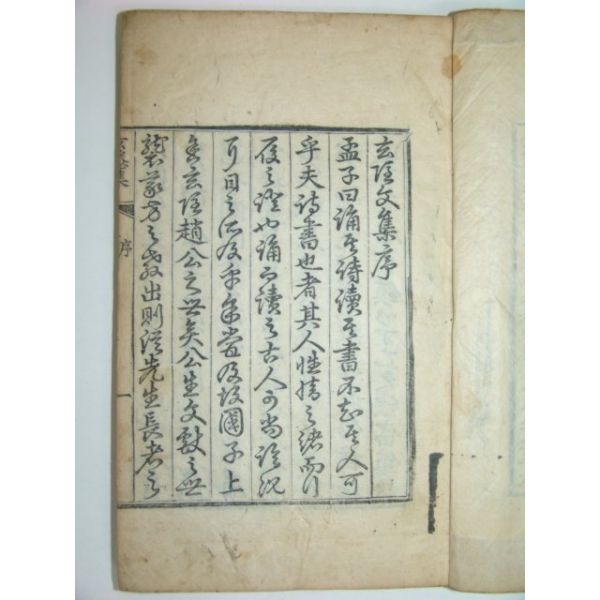 玄文集序
孟子曰誦其詩讀其書不知其人可
乎夫詩書也者其人性情之緒而行
履之證也誦而讀之古人可尚論況
耳目之所及乎余嘗及子上
舍玄趙公之世矣公生文獻之世
襲家方之教出則從先生長者之
玄集 序 一